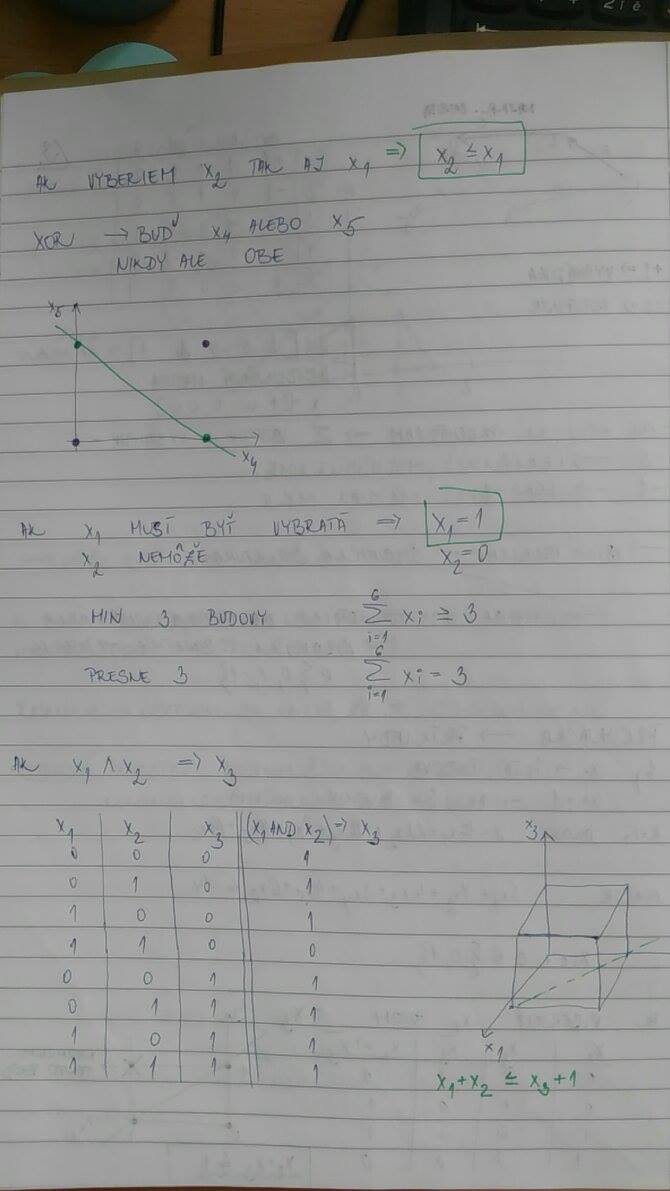 AK VYBERIEM x₂ TAK AJ x₁ => x₂ ≤ x₁
XOR → BUĎ x₄ ALEBO x₅
NIKDY ALE OBE
x₅
x₄
AK x₁ MUSÍ BYŤ VYBRATÁ => x₁ = 1
x₂ NEMÔŽE x₂ = 0
MIN 3 BUDOVY ∑_{i=1}^{6} xi ≥ 3
PRESNE 3 ∑_{i=1}^{6} xi = 3
AK x₁ ∧ x₂ => x₃
x₁ x₂ x₃ (x₁ AND x₂) => x₃
0 0 0 1
0 1 0 1
1 0 0 1
1 1 0 0
0 0 1 1
0 1 1 1
1 0 1 1
1 1 1 1
x₃
x₁
x₁ + x₂ ≤ x₃ + 1